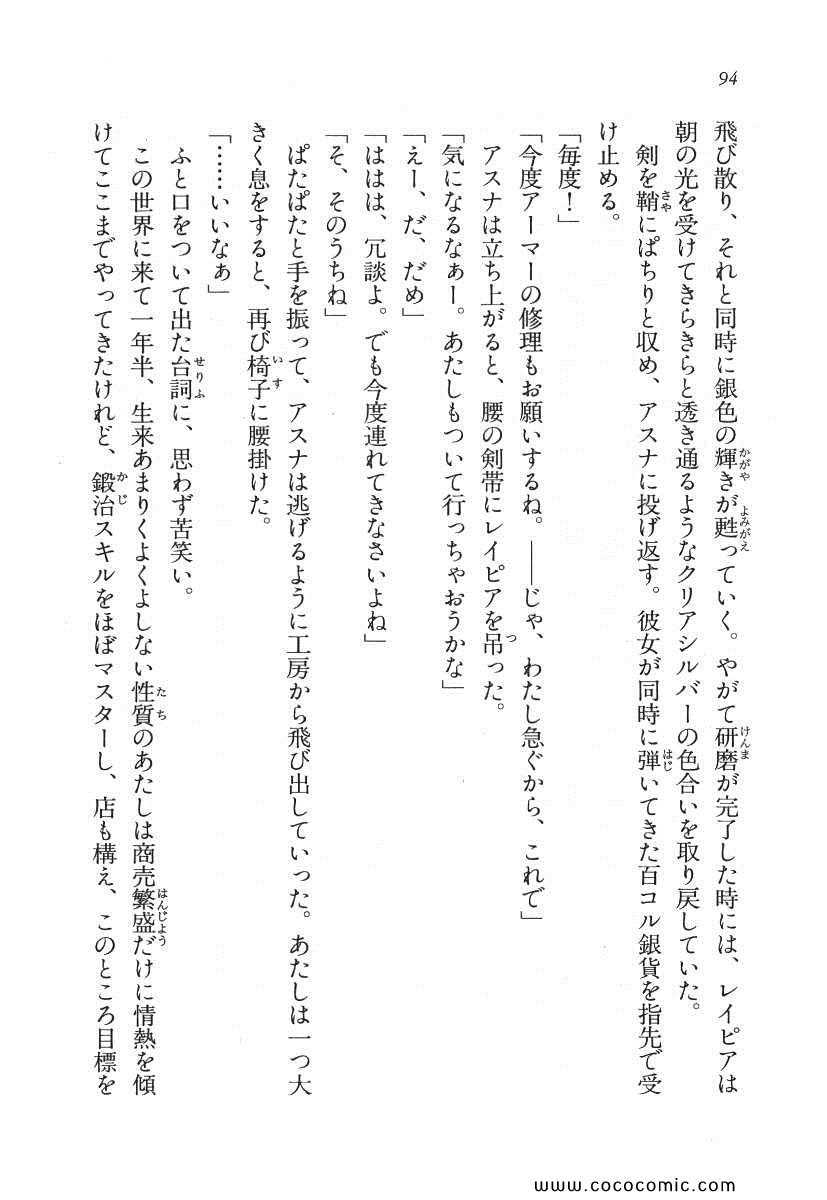 94
飛び散り、それと同時に銀色の輝きが甦っていく。やがて研磨が完了した時には、レイピアは
朝の光を受けてきらきらと透き通るようなクリアシルバーの色合いを取り戻していた。
剣を鞘にぱちりと収め、アスナに投げ返す。彼女が同時に弾いてきた百コル銀貨を指先で受
け止める。
「毎度！」
「今度アーマーの修理もお願いするね。――じゃ、わたし急ぐから、これで」
アスナは立ち上がると、腰の剣帯にレイピアを吊った。
「気になるなぁー。あたしもついて行っちゃおうかな」
「えー、だ、だめ」
「ははは、冗談よ。でも今度連れてきなさいよね」
「そ、そのうちね」
ぱたぱたと手を振って、アスナは逃げるように工房から飛び出していった。あたしは一つ大
きく息をすると、再び椅子に腰掛けた。
「……いいなぁ」
ふと口をついて出た台詞に、思わず苦笑い。
この世界に来て一年半、生来あまりくよくよしない性質のあたしは商売繁盛だけに情熱を傾
けてここまでやってきたけれど、鍛冶スキルをほぼマスターし、店も構え、このところ目標を
www.cococomic.com